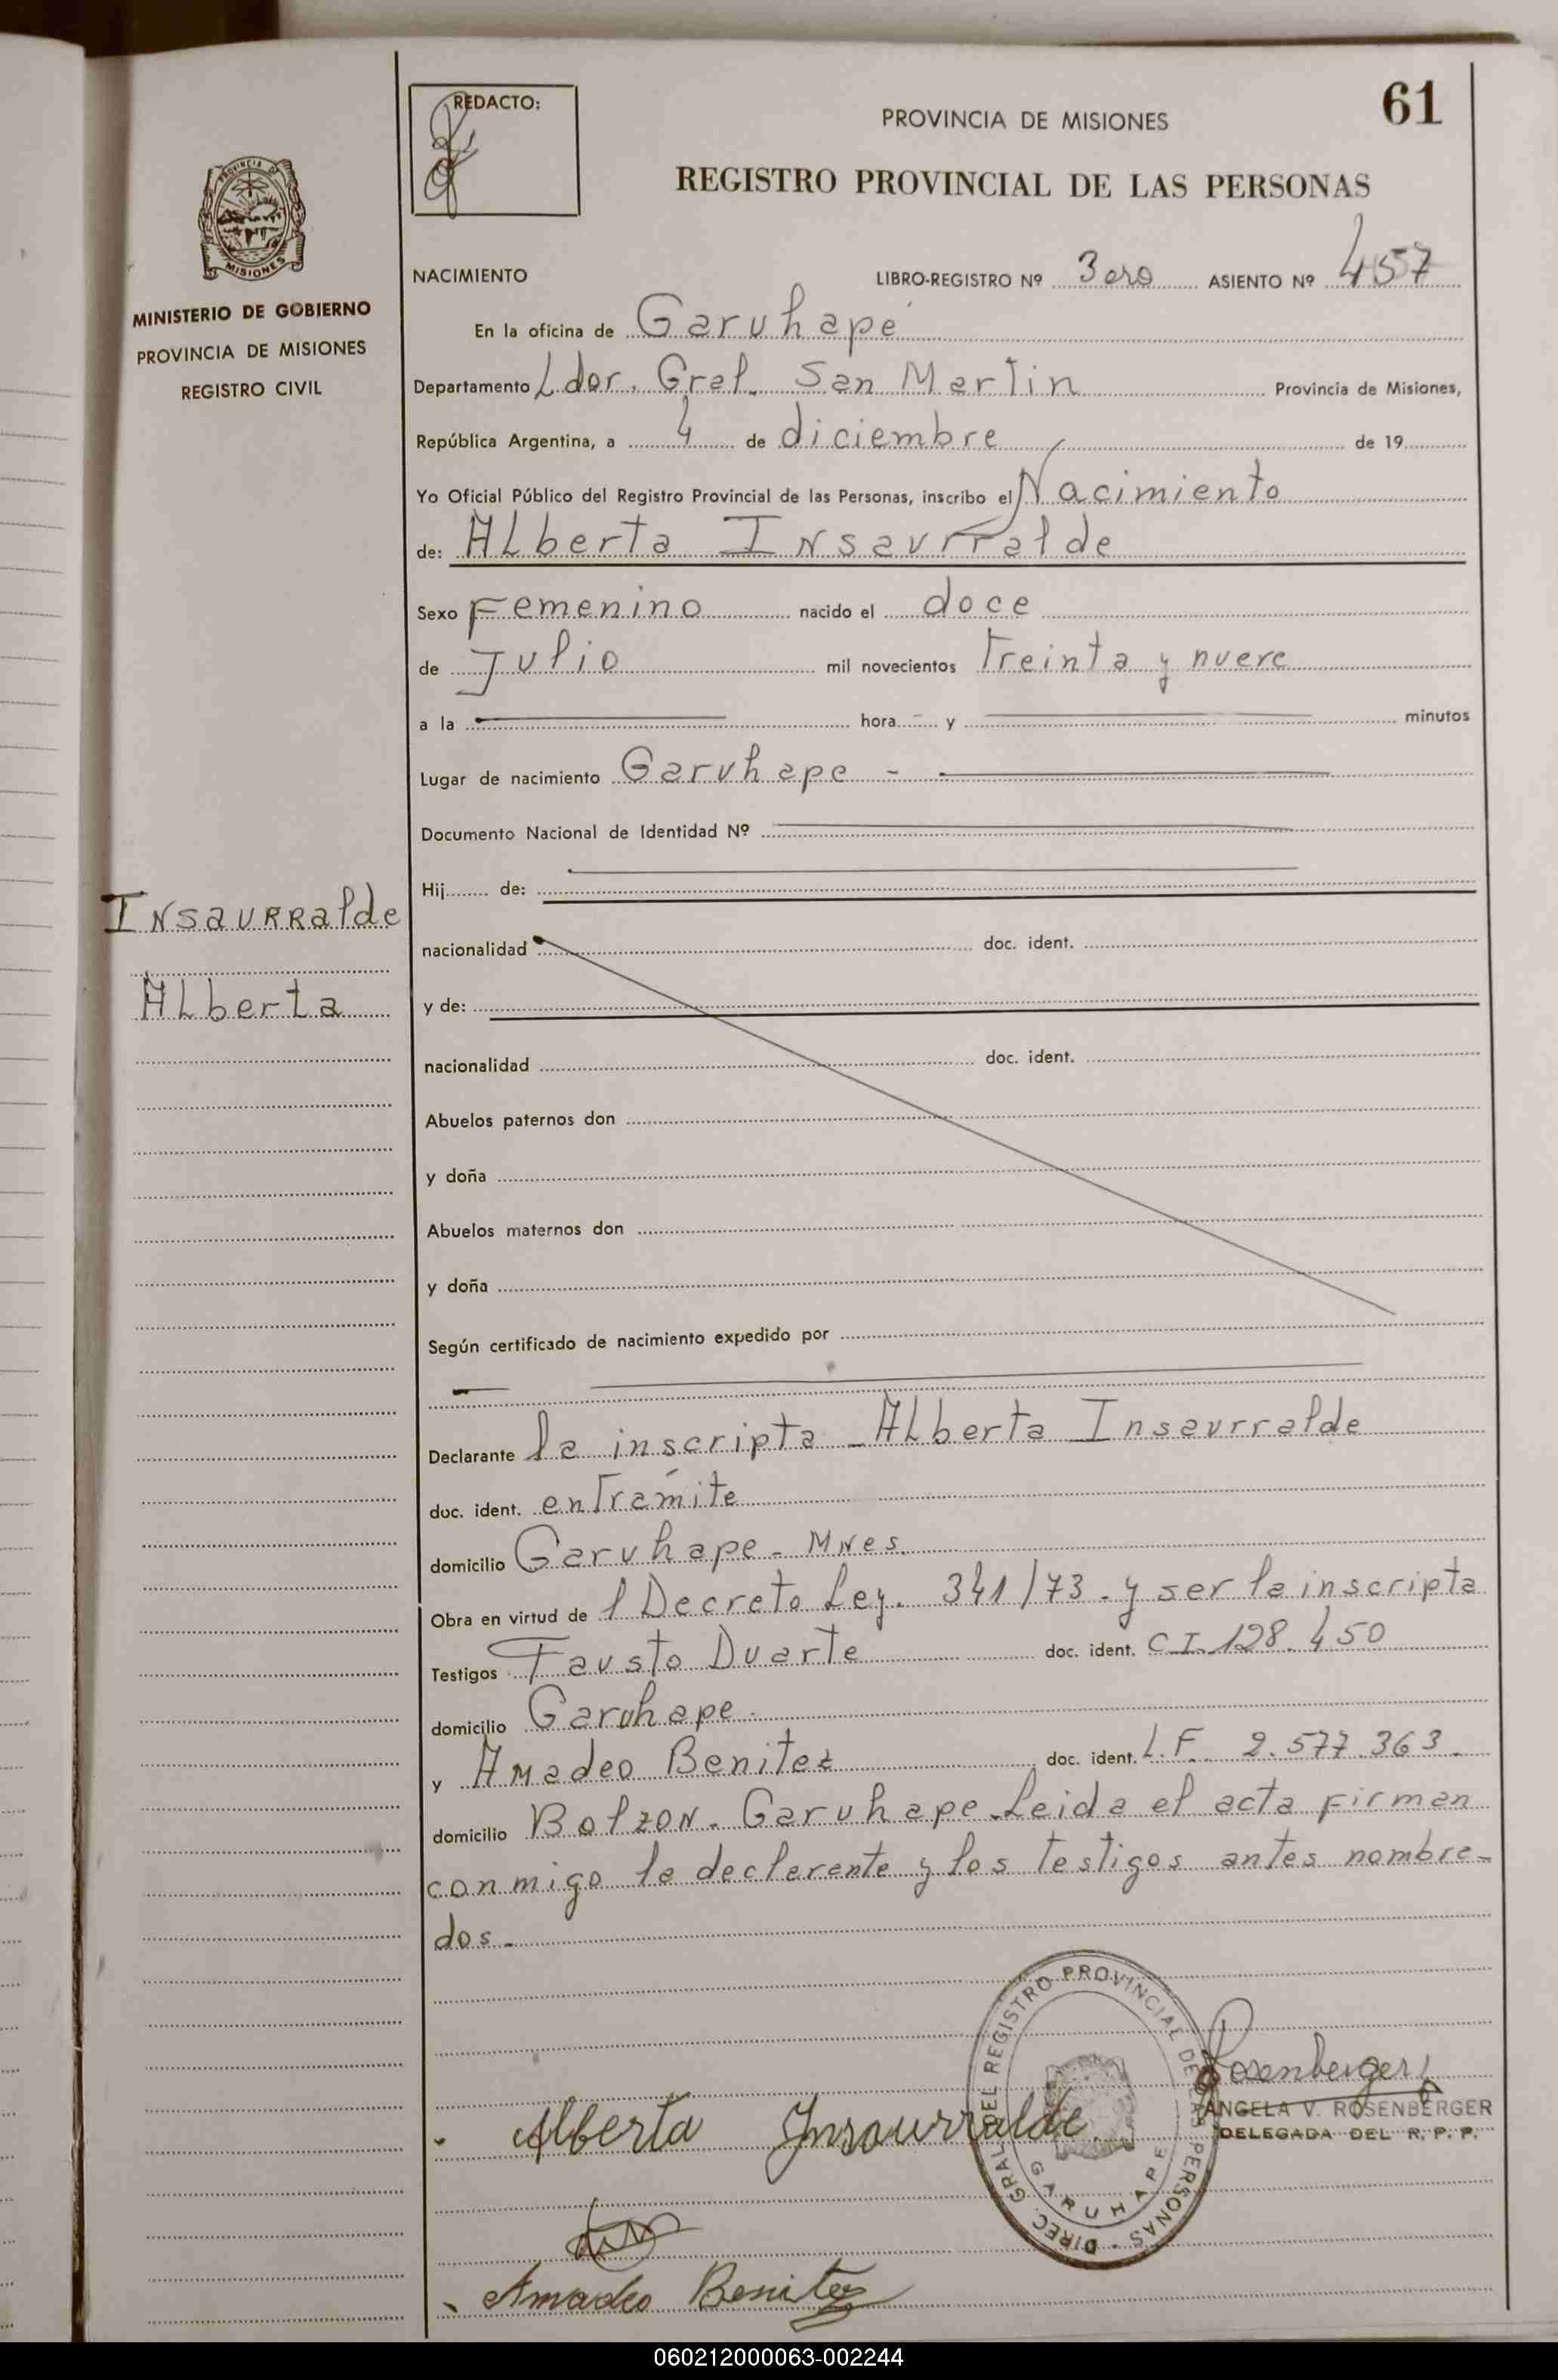 61
REDACTO:
PROVINCIA DE MISIONES
REGISTRO PROVINCIAL DE LAS PERSONAS
PROVINCIA DE
MISIONES
MINISTERIO DE GOBIERNO
PROVINCIA DE MISIONES
REGISTRO CIVIL
NACIMIENTO LIBRO-REGISTRO Nº 3ero ASIENTO Nº 457
En la oficina de Garuhapé
Departamento Ldor. Gral. San Martin Provincia de Misiones,
República Argentina, a 4 de diciembre de 19
Yo Oficial Público del Registro Provincial de las Personas, inscribo el Nacimiento
de: ALberta Insaurralde
Sexo Femenino nacido el doce
de Julio mil novecientos Treinta y nueve
a la hora y minutos
Lugar de nacimiento Garuhape -
Documento Nacional de Identidad Nº
Hij de:
Insaurralde
ALberta
nacionalidad doc. ident.
y de:
nacionalidad doc. ident.
Abuelos paternos don
y doña
Abuelos maternos don
y doña
Según certificado de nacimiento expedido por
Declarante la inscripta - ALberta Insaurralde
doc. ident. en Trámite
domicilio Garuhape - MNes.
Obra en virtud de l Decreto Ley. 341/73 - y ser la inscripta
Testigos Fausto Duarte doc. ident. C I. 128.450
domicilio Garuhape.
y Amadeo Benitez doc. ident. L.F. 2.577.363.
domicilio Bolzon. Garuhape. Leida el acta Firman
conmigo la declarante y los Testigos antes nombra-
dos.
DIREC. GRAL. DEL REGISTRO PROVINCIAL DE LAS PERSONAS
GARUHAPE
Rosenberger
ANGELA V. ROSENBERGER
DELEGADA DEL R. P. P.
Alberta Insaurralde
Amadeo Benitez
060212000063-002244